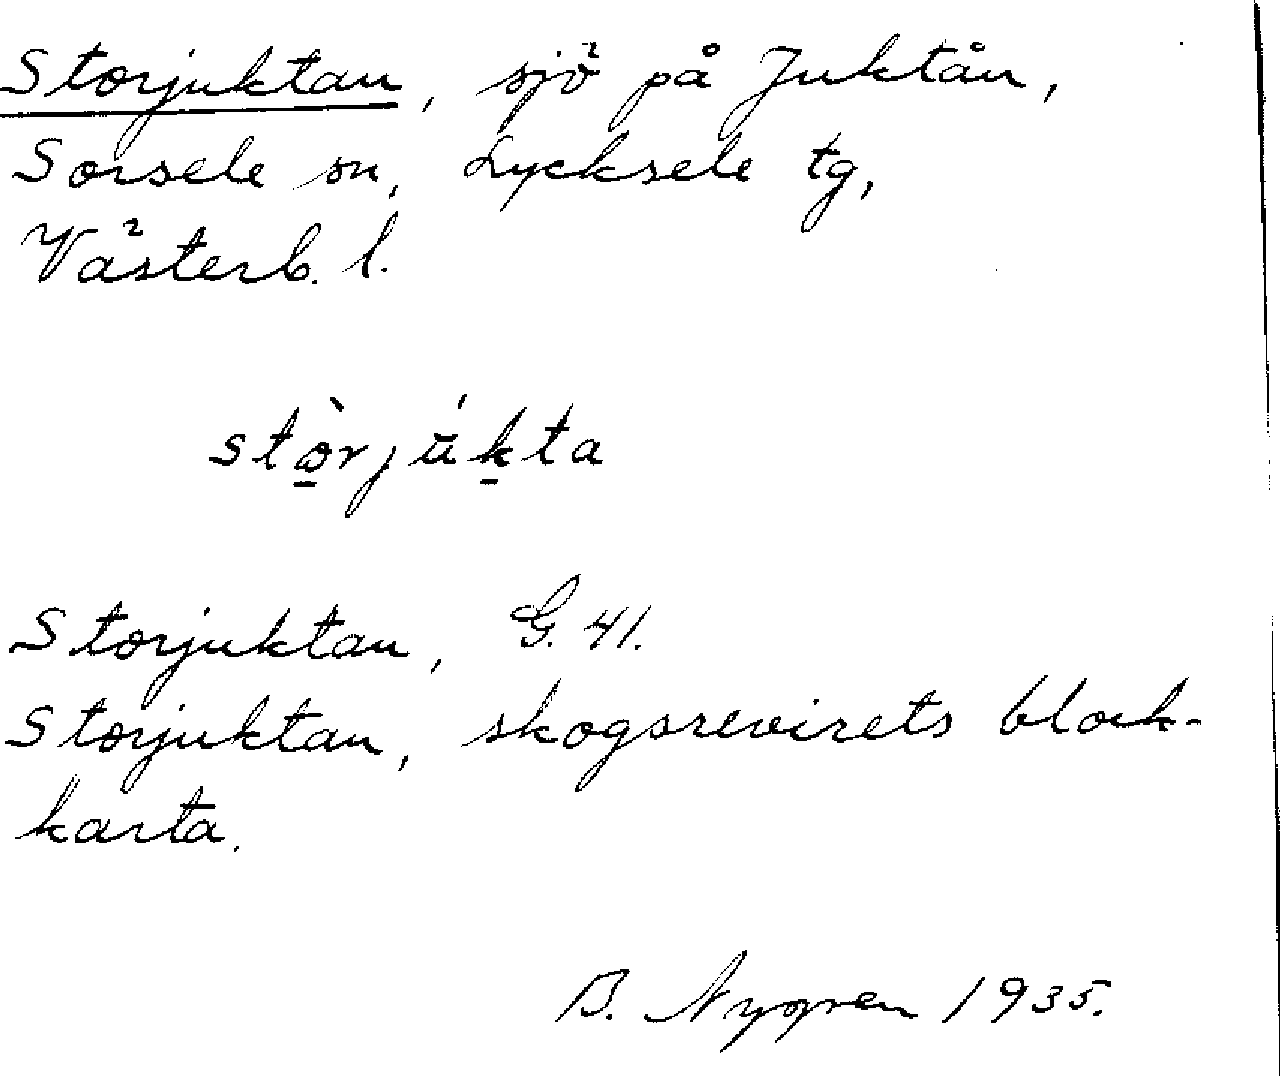 Storjuktan, sjö på Juktån,
Sorsele sn, Lycksele tg,
Västerb. l.
stò̱rjú̆ḵta
Storjuktan, G. 41.
Storjuktan, skogsrevirets block-
karta.
B. Nygren 1935.